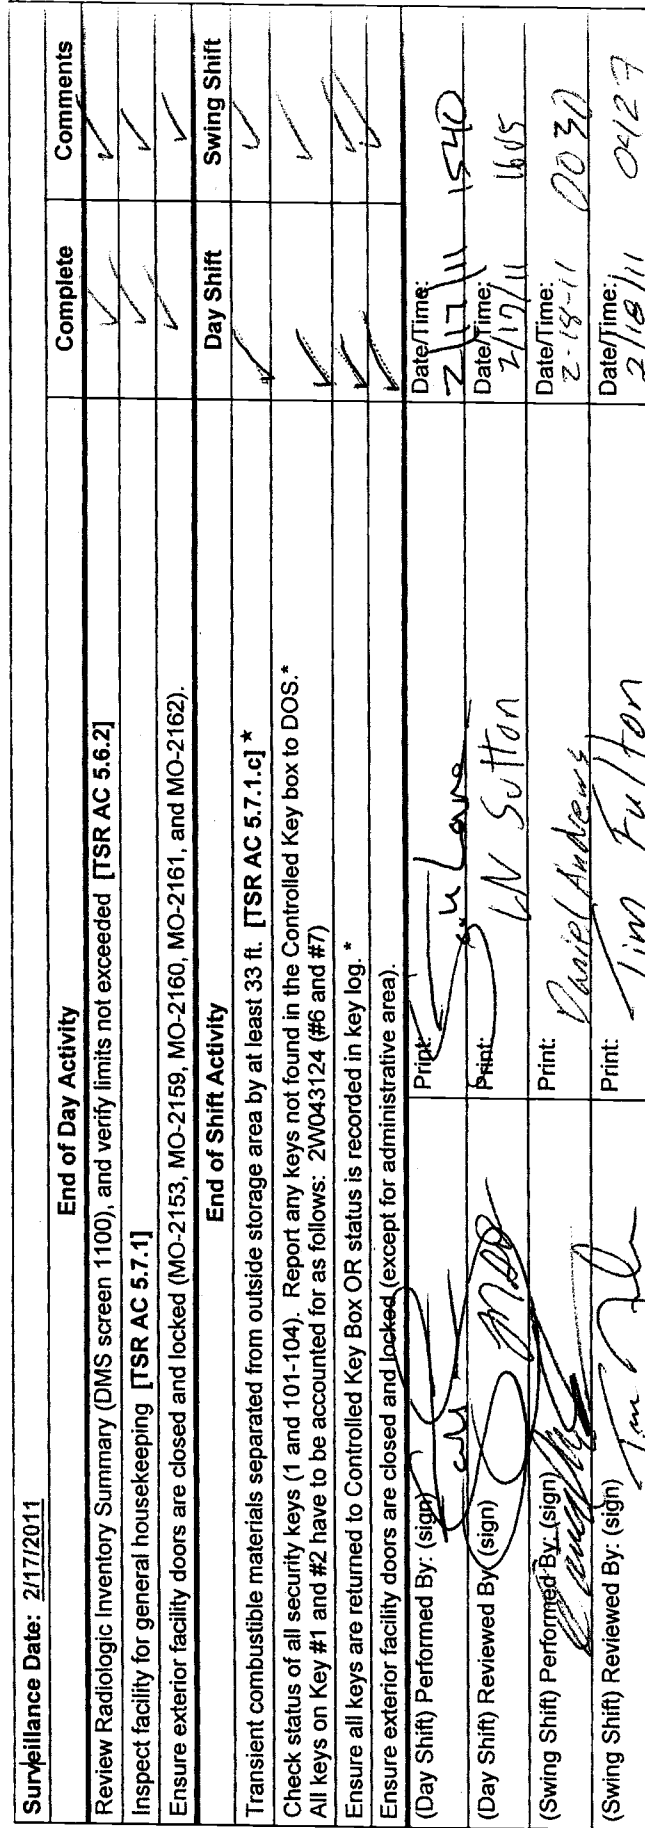 Surveillance Date: 2/17/2011
End of Day Activity Complete Comments
Review Radiologic Inventory Summary (DMS screen 1100), and verify limits not exceeded [TSR AC 5.6.2] ✓ ✓
Inspect facility for general housekeeping [TSR AC 5.7.1] ✓ ✓
Ensure exterior facility doors are closed and locked (MO-2153, MO-2159, MO-2160, MO-2161, and MO-2162). ✓ ✓
End of Shift Activity Day Shift Swing Shift
Transient combustible materials separated from outside storage area by at least 33 ft. [TSR AC 5.7.1.c] * ✓ ✓
Check status of all security keys (1 and 101-104). Report any keys not found in the Controlled Key box to DOS.* ✓ ✓
All keys on Key #1 and #2 have to be accounted for as follows: 2W043124 (#6 and #7)
Ensure all keys are returned to Controlled Key Box OR status is recorded in key log. * ✓ ✓
Ensure exterior facility doors are closed and locked (except for administrative area). ✓ ✓
(Day Shift) Performed By: (sign) Print: Date/Time: 2/17/11 1540
(Day Shift) Reviewed By: (sign) Print: LN Sutton Date/Time: 2/17/11 1605
(Swing Shift) Performed By: (sign) Print: Daniel Andrews Date/Time: 2-18-11 0030
(Swing Shift) Reviewed By: (sign) Print: Tim Fulton Date/Time: 2/18/11 0427